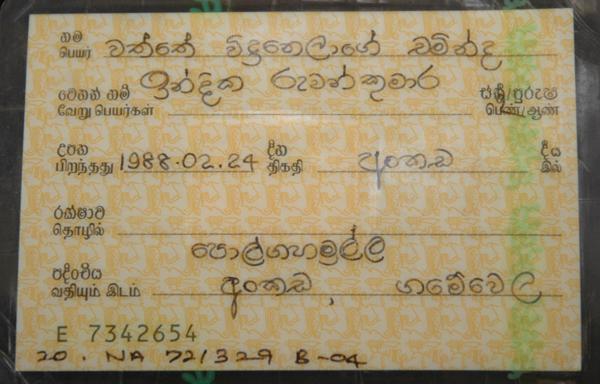 නම වත්තේ විදුනෙලාගේ චමින්ද
பெயர்
ඉන්දික රුවන්කුමාර
වෙනත් නම් ස්ත්‍රී/පුරුෂ
வேறு பெயர்கள் பெண்/ஆண்
උපන 1988.02.24 දින අංකඩ දීය
பிறந்தது திகதி இல்
රක්ෂාව
தொழில்
පොල්ගහමුල්ල
පදිංචිය අංකඩ, ගමේවෙල
வதியும் இடம்
E 7342654
20. NA 721329 B-04